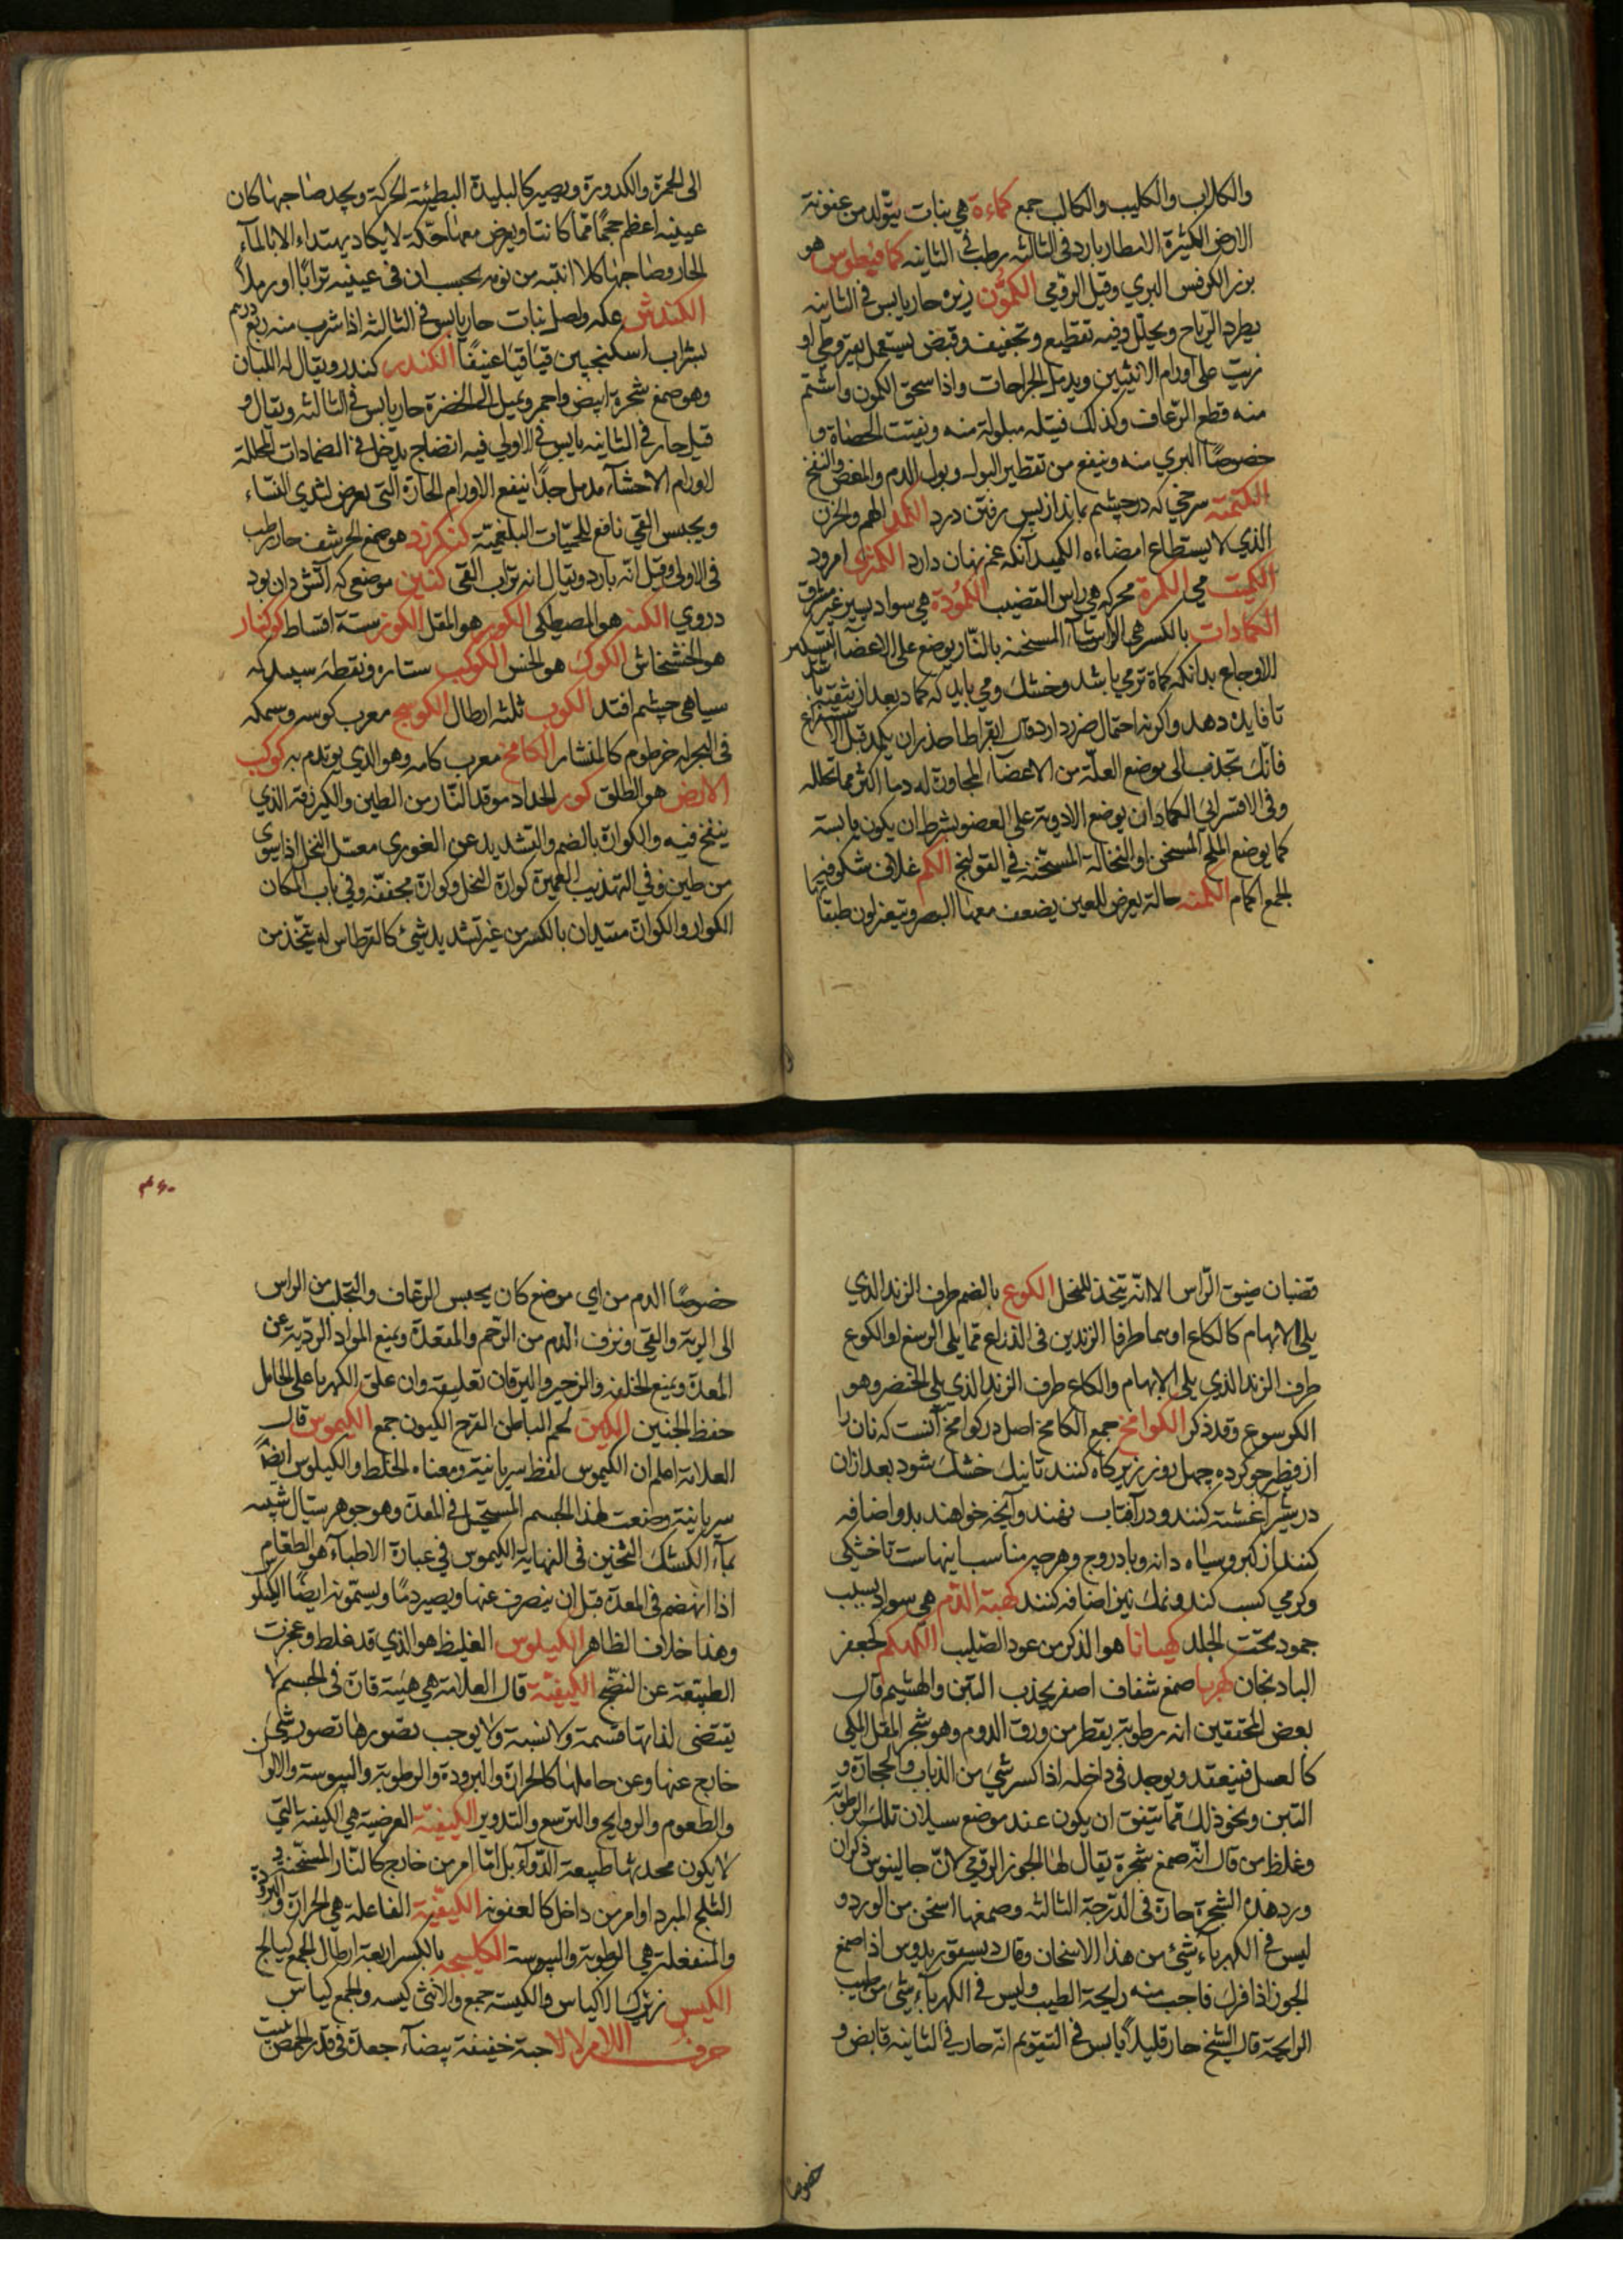 والكلاب والكليب والكالب جمع كماءة هي نبات يتولد من عفونة
الارض الكثيرة الامطار بارد في الثالثه رطب في الثانيه كمافيطوس هو
بزر الكرفس البري وقيل الرومي الكمون زيره حار يابس في الثانيه
يطرد الرياح ويحلل وفيه تقطيع وتجفيف وقبض يستعمل بقيروطي او
زيت على اورام الانثيين ويدمل الجراحات واذا سحق الكمون واشتم
منه قطع الرعاف وكذلك فتيله مبلولة منه ويفتت الحصاة و
خصوصًا البري منه وينفع من تقطير البول وبول الدم والمغص والنفخ
الكمنة سرخي كه در چشم بماند از پس رفتن درد الكمد الهم والحزن
الذي لا يستطاع امضاءه الكميد آنكه غم نهان دارد الكمثرى امرود
الكميت مي الكمرة محركه هي راس القضيب الكمودة هي سواد يسير غير مشرق
الكمادات بالكسر هي الاشياء المسخنه بالنار يوضع على الاعضا لتسكين
الاوجاع بدانكه كماد ترمي باشد وخشك ومي بايد كه كماد بعد از تنقيه باشد
تا فايده دهد واكر نه احتمال ضرر دارد وقال ابقراط احذر ان يكمد قبل الاستفراغ
فانك تجذب الى موضع العلة من الاعضاء المجاورة له دما اكثر مما تحلله
وفي الاقسرائي الكماد ان يوضع الادوية على العضو بشرط ان يكون يابسة
كما يوضع الملح المسخن او النخالة المسخنة في القولنج الكم غلاف شكوفها
الجمع اكمام الكمنه حالة يعرض للعين يضعف معها البصر ويتغير لون طبقاتها
الى الحمرة والكدورة ويصير كالبليدة البطيئة الحركة ويجد صاحبها كان
عينيه اعظم حجمًا مما كانتا ويعرض معها حكة لا يكاد يهتداء الا بالماء
الحار وصاحبها كلما انتبه من نومه يحسب ان في عينيه ترابًا او رملًا
الكندش عكه واصل نبات حار يابس في الثالثه اذا شرب منه ربع درهم
بشراب اسكنجبين قيا قيئًا عنيفًا الكندر كندر ويقال له اللبان
وهو صمغ شجرة ابيض واحمر ويميل الى الخضرة حار يابس في الثالثه ويقال و
قيل حار في الثانيه يابس في الاولى فيه انضاج يدخل في الضمادات المحللة
لاورام الاحشاء مدمل جدًا ينفع الاورام الحارة التي يعرض لثدي النساء
ويحبس القي نافع للحميات البلغمية كنكرزد هو صمغ الحرشف حار رطب
في الاولى وقيل انه بارد ويقال انه تراب القي كنين موضعي كه آتش دان بود
دروي الكنه هو المصطكى الكور هو المقل الكوز ستة اقساط كوكنار
هو الخشخاش الكوك هو الخس الكوكب ستاره ونقطه سپيد كه
سياهي چشم افتد الكوب ثلثه ارطال الكوسج معرب كوسه وسمكه
في البحر له خرطوم كالمنشار الكامخ معرب كامه وهو الذي يوتدم به كوكب
الارض هو الطلق كور الحداد موقد النار من الطين والكير زقه الذي
ينفخ فيه والكوارة بالضم والتشديد عن الغوري معسل النحل اذا سوي
من طين وفي التهذيب العميرة كوارة النحل وكوارة مخففة وفي باب الكاف
الكوار والكوارة مقيدان بالكسر من غير تشديد شئ كالقرطاس له يتخذ من
قضبان ضيق الراس الا انه يتخذ للنحل الكوع بالضم طرف الزند الذي
يلي الابهام كالكاع او هما طرفا الزندين في الذراع مما يلي الرسغ او الكوع
طرف الزند الذي يلي الابهام والكاع طرف الزند الذي يلي الخنصر وهو
الكرسوع وقد ذكر الكوامخ جمع الكامخ اصل در كوامخ آنست كه نان را
از فطير جو كرده چهل روز زير كاه كنند تا نيك خشك شود بعد از ان
در شير آغشته كنند ودر آفتاب نهند وآنچه خواهند بدو اضافه
كنند از كبر وسياه دانه وبادروج وهر چه مناسب اينهاست تا خشكي
وكرمي كسب كند ونمك نيز اضافه كنند كهبة الدم هي سواد بسبب
جمود تحت الجلد كهيانا هو الذكر من عود الصليب الكهكم كجعفر
البادنجان كهربا صمغ شفاف اصفر يجذب التبن والهشيم قال
بعض المحققين انه رطوبة يقطر من ورق الدوم وهو شجر المقل المكي
كالعسل فينعقد ويوجد في داخله اذا كسر شي من الذباب والحجارة و
التبن ونحو ذلك مما يتفق ان يكون عند موضع سيلان تلك الرطوبة
وغلط من قال انه صمغ شجرة يقال لها الجوز الرومي لان جالينوس ذكر ان
ورد هذه الشجرة حارة في الدرجة الثالثه وصمغها اسخن من الورد و
ليس في الكهرباء شئ من هذا الاسخان وقال ديسقوريدوس اذا صمغ
الجوز اذا فرك فاحت منه رايحة الطيب وليس في الكهرباء شئ من طيب
الرايحة قال الشيخ حار قليلًا يابس في التقويم انه حار في الثانيه قابض و
خصوصا
۴۶۰
خصوصًا الدم من اي موضع كان يحبس الرعاف والتجلب من الراس
الى الرية والقي ونزف الدم من الرحم والمقعدة ويمنع المواد الردية عن
المعدة ويمنع الخلفه والزحير واليرقان تعليقه وان علق الكهربا على الحامل
حفظ الجنين الكين لحم الباطن الفرج الكيون جمع الكيموس قال
العلامة اعلم ان الكيموس لفظ سريانية ومعناه الخلط والكيلوس ايضًا
سريانية وضعت لهذا الجسم المستحيل في المعدة وهو جوهر سيال شبيه
بماء الكشك الثخين في النهاية الكيموس في عبارة الاطباء هو الطعام
اذا انهضم في المعدة قبل ان ينصرف عنها ويصير دمًا ويسمونه ايضًا الكيلوس
وهذا خلاف الظاهر الكيلوس الغليظ هو الذي قد غلظ وعجزت
الطبيعة عن النضج الكيفية قال العلامة هي هيئة قارة في الجسم لا
يقتضى لذاتها قسمة ولا نسبة ولا يوجب تصورها تصور شئ
خارج عنها وعن حاملها كالحرارة والبرودة والرطوبة واليبوسة والالوان
والطعوم والروايح والتربيع والتدوير الكيفية العرضية هي الكيفية التي
لا يكون محدثها طبيعة الدواء بل اما امر من خارج كالنار المسخنة و
الثلج المبرد او امر من داخل كالعفونة الكيفية الفاعلة هي الحرارة والبرودة
والمنفعلة هي الرطوبة واليبوسة الكليجه بالكسر اربعة ارطال الجمع كيالج
الكيس زيرك الاكياس والكيسة جمع والانثى كيسه والجمع كياس
حرف اللام لالا حبة خفيفة بيضاء جعدة في قدر الحمص ينبت